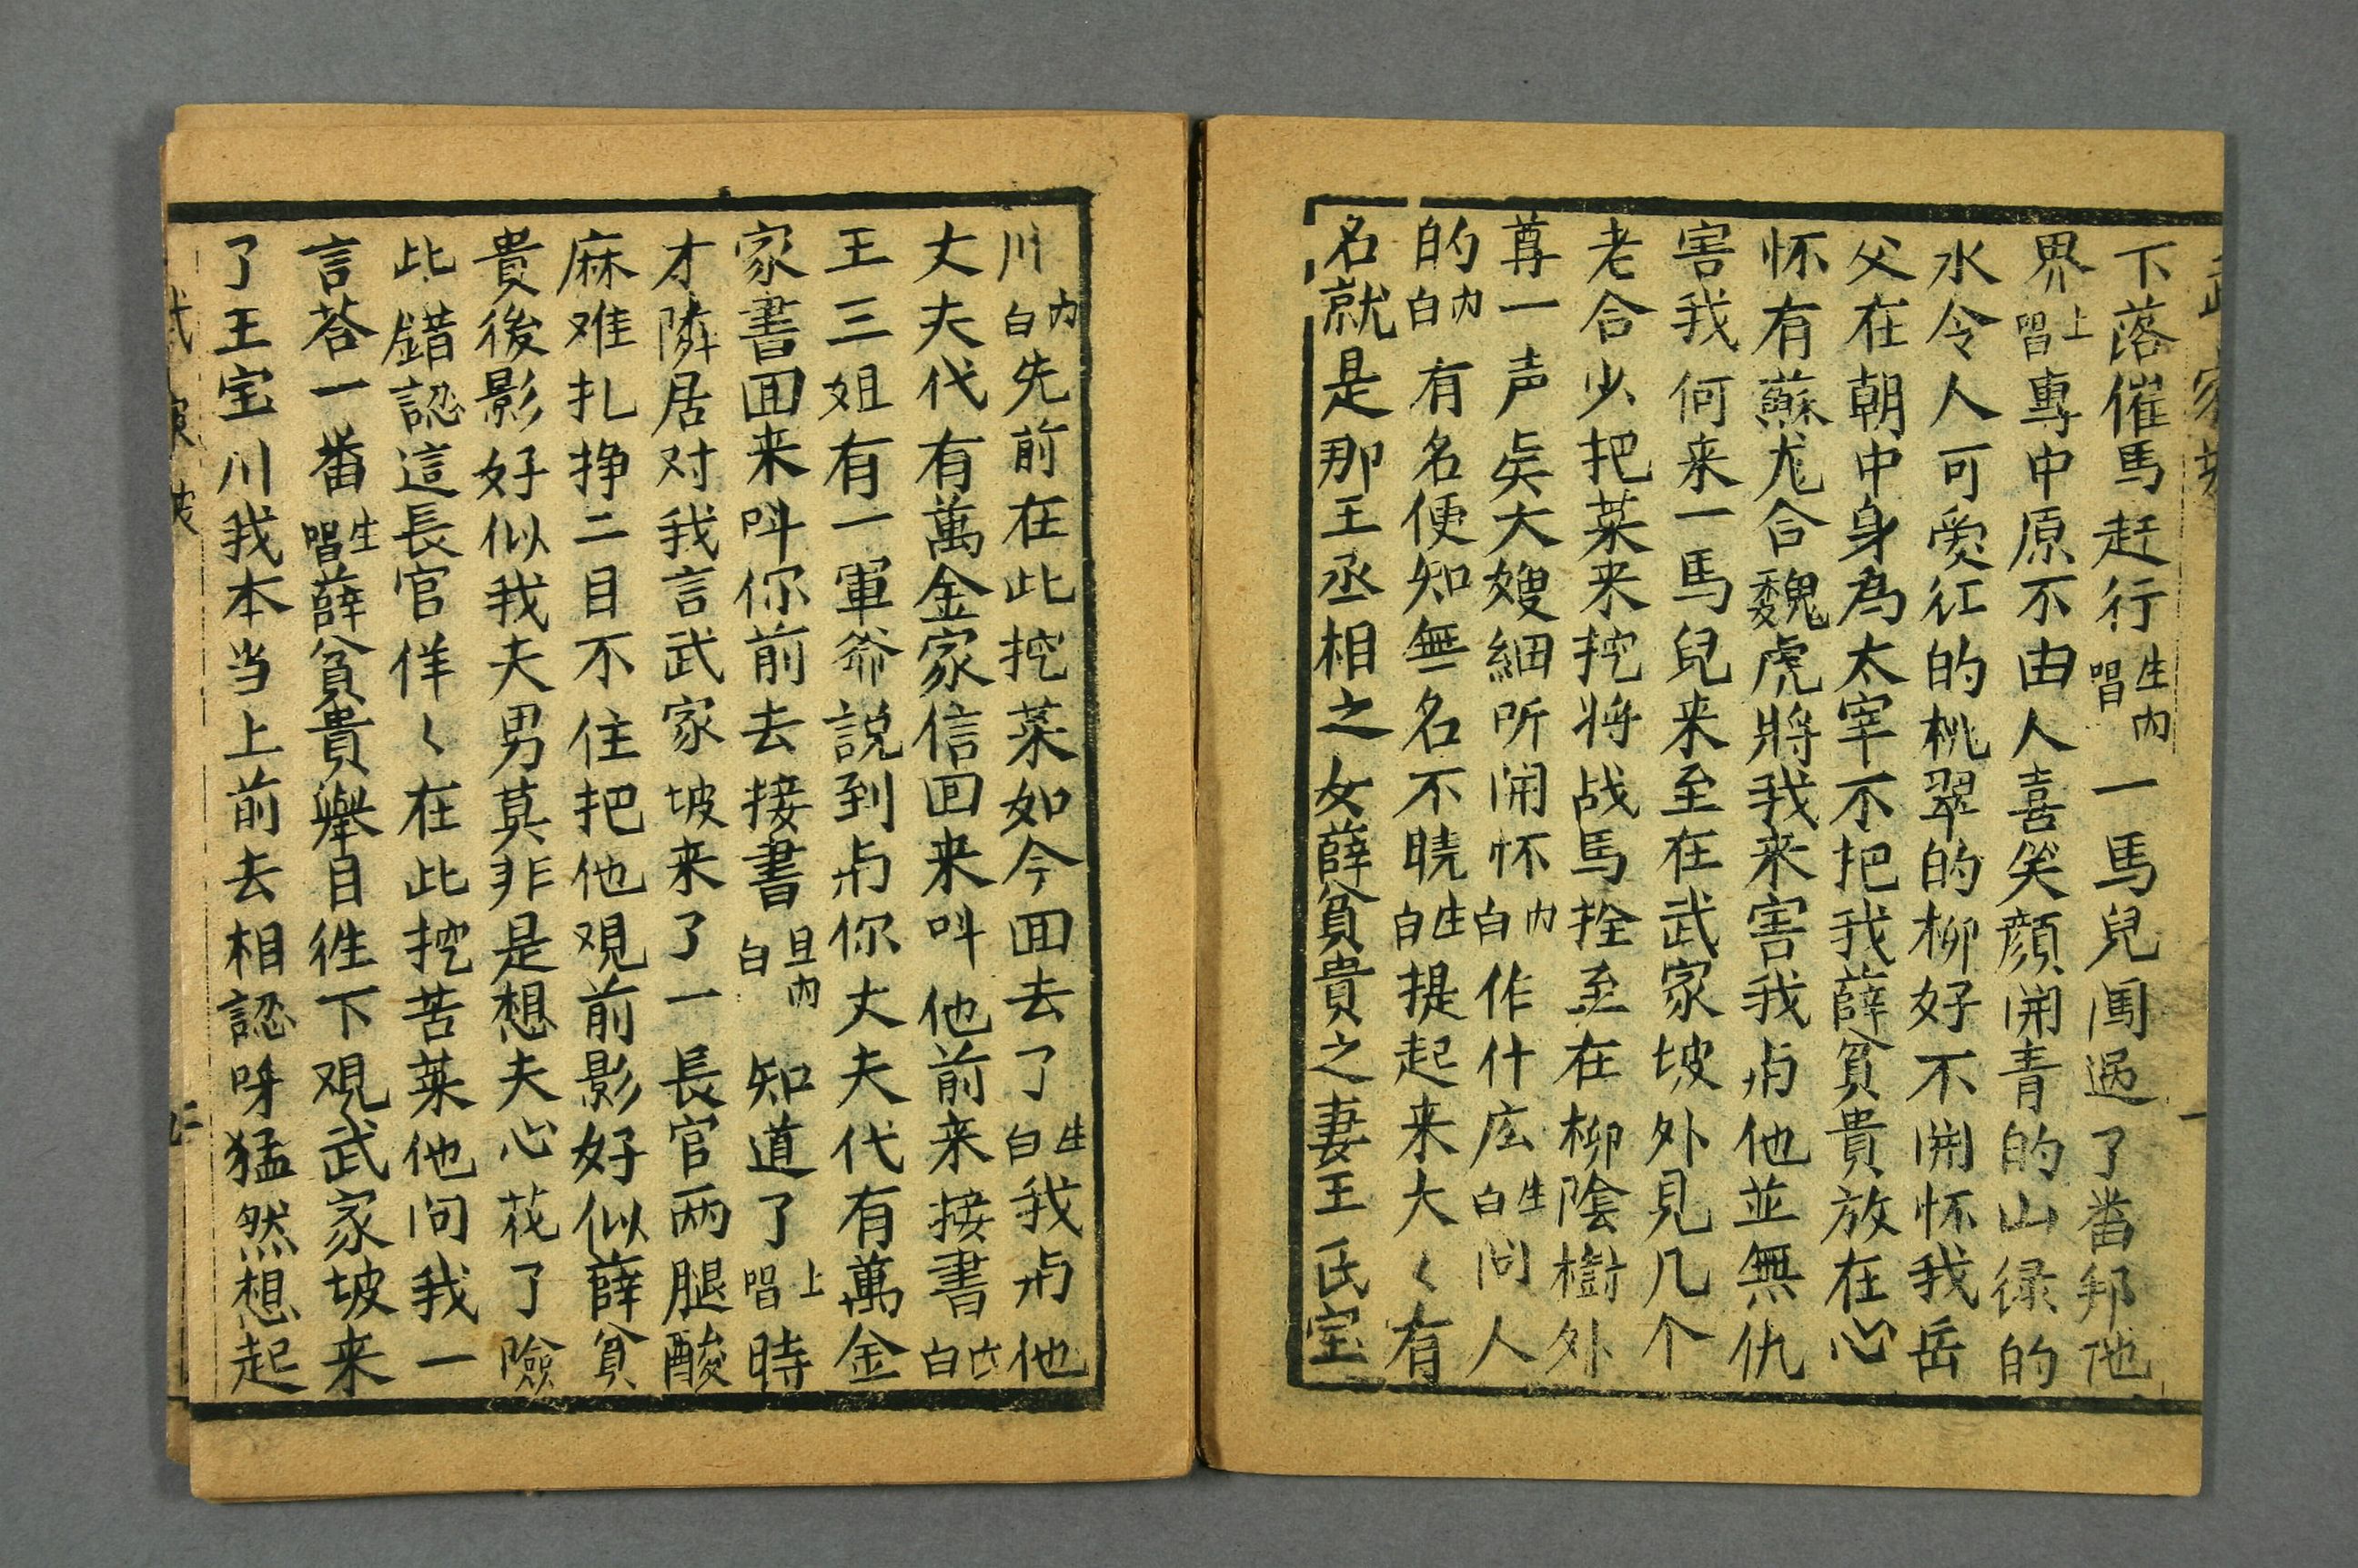 下落催馬赶行生內唱一馬兒闖過了畨邦他
界上唱專中原不由人喜笑顔開青的山禄的
水令人可爱红的桃翠的柳好不開怀我岳
父在朝中身為太宰不把我薛貧貴放在心
怀有蘇尤合魏虎將我来害我与他並無仇
害我何来一馬兒来至在武家坡外見几个
老合少把菜来挖将战馬拴至在柳陰樹外
尊一声矣大嫂細听開怀內白作什庅生白问人
的內白有名便知無名不曉生白提起来大〻有
名就是那王丞相之女薛貧貴之妻王氏宝
川內白先前在此挖菜如今回去了生白我与他
丈夫代有萬金家信回来呌他前来接書內白
王三姐有一軍爺説到与你丈夫代有萬金
家書回来呌你前去接書旦內白知道了上唱時
才隣居对我言武家坡来了一長官两腿酸
麻难扎挣二目不住把他覌前影好似薛貧
貴後影好似我夫男莫非是想夫心花了險
此錯認這長官佯〻在此挖苦菜他问我一
言荅一畨生唱薛貧貴舉目徃下覌武家坡来
了王宝川我本当上前去相認呀猛然想起